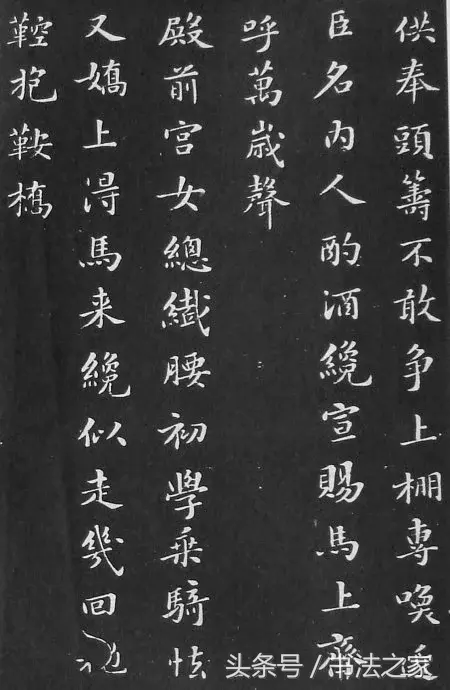 供奉頭籌不敢争上棚專喚
臣名内人酌酒纔宣賜馬上齊
呼萬嵗聲
殿前宮女總纖腰初學乘騎怯
又嬌上得馬来纔似走幾回
鞚抱鞍橋
头条号 / 书法之家